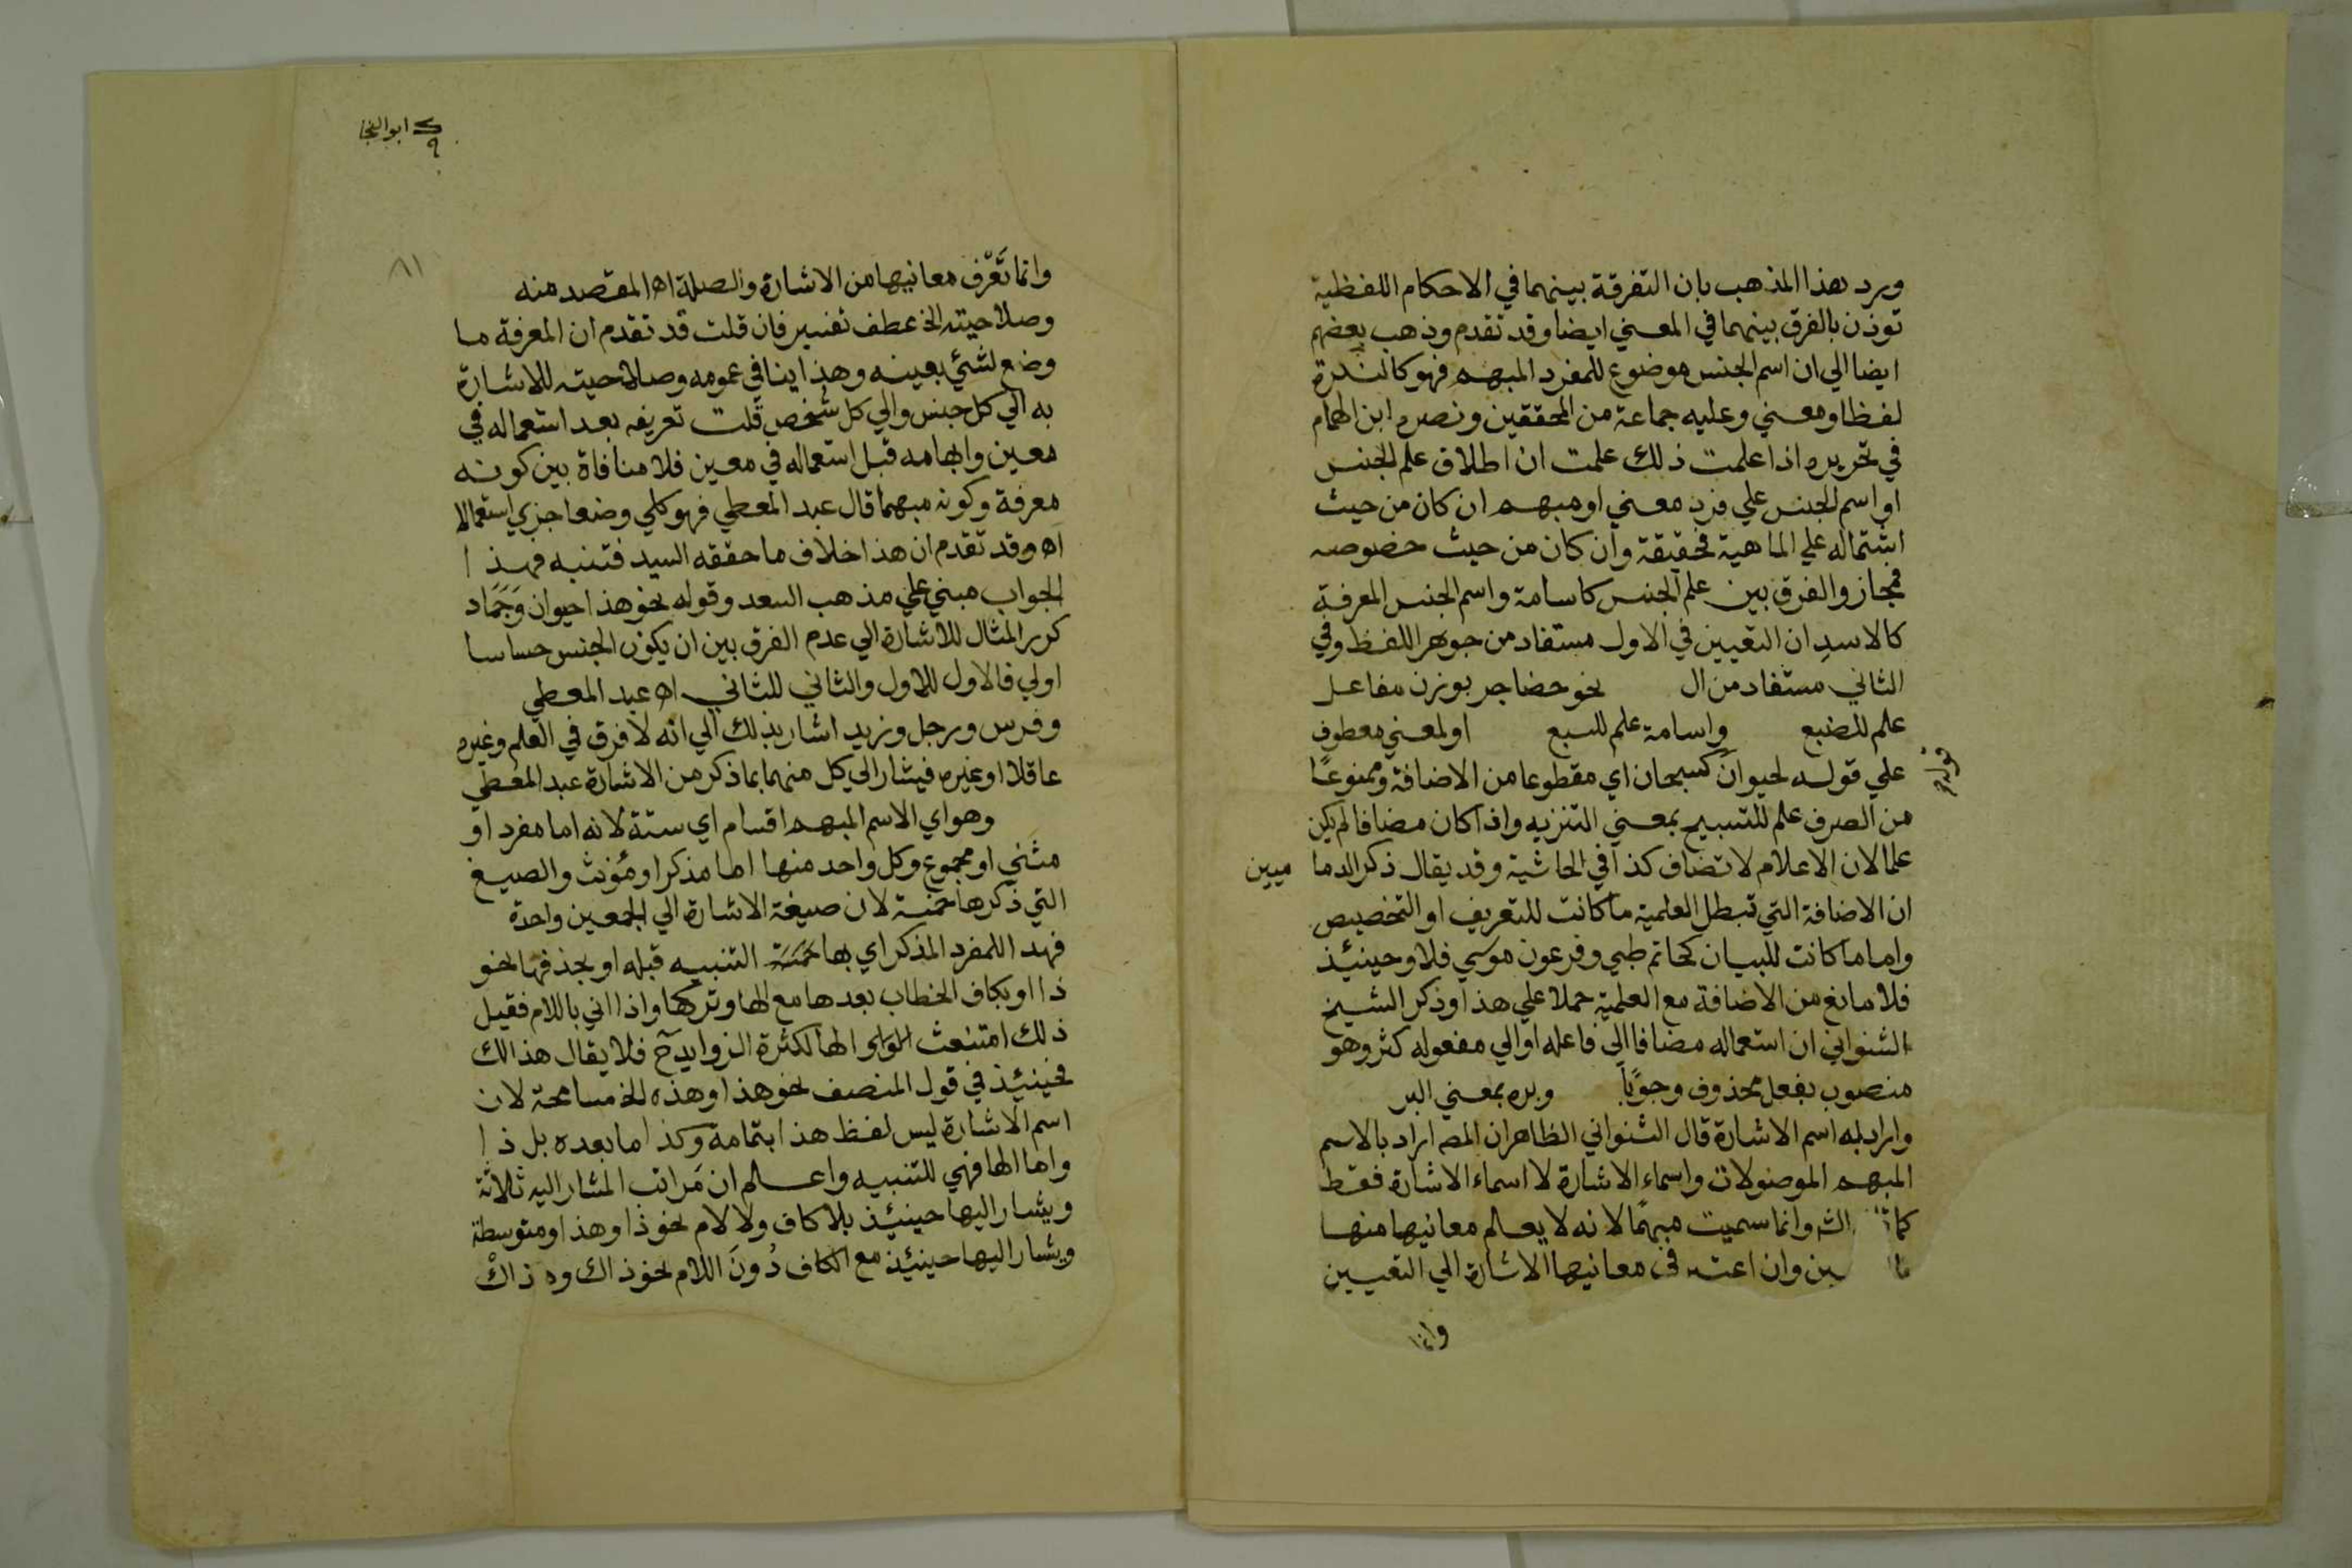 ويرد هذا المذهب بان التفرقة بينهما في الاحكام اللفظية
توذن بالفرق بينهما في المعني ايضا وقد تقدم وذهب بعضهم
ايضا الي ان اسم الجنس موضوع للمفرد المبهم فهو كالنكرة
لفظا ومعني وعليه جماعة من المحققين ونصره ابن الهمام
في تحريره اذا علمت ذلك علمت ان اطلاق علم الجنس
او اسم الجنس علي فرد معني او مبهم ان كان من حيث
اشتماله علي الماهية فحقيقة وان كان من حيث خصوصه
فمجاز والفرق بين علم الجنس كاسامة واسم الجنس المعرفة
كالاسدِ ان التعيين في الاول مستفاد من جوهر اللفظ وفي
الثاني مستفاد من ال نحو حضاجر بوزن مفاعل
علم للضبع واسامة علم للسبع او لمعني معطوف
علي قوله لحيوان كسبحان اي مقطوعا من الاضافة وممنوعًا
من الصرف علم للتسبيح بمعني التنزيه واذا كان مضافا لم يكن
علما لان الاعلام لا تضاف كذا في الحاشية وقد يقال ذكر الدما ميين
ان الاضافة التي تبطل العلمية ما كانت للتعريف او التخصيص
واما ما كانت للبيان كحاتم طيي وفرعون موسي فلا وحينئذ
فلا مانع من الاضافة مع العلمية حملا علي هذا وذكر الشيخ
الشنواني ان استعماله مضافا الي فاعله او الي مفعوله كثر وهو
منصوب بفعل محذوف وجوباً وبره بمعني البر
واراد به اسم الاشارة قال الشنواني الظاهر ان المصه اراد بالاسم
المبهم الموصولات واسماء الاشارة لا اسماء الاشارة فقط
وانما سميت مبهمًا لانه لا يعلم معانيها منها
وان اعتبر في معانيها الاشارة الي التعيين
وانما
ابو النجا
٩
٨١
وانما تَعّرف معانيها من الاشارة والصلة اه المقصد منه
وصلاحيته الخ عطف تفسير فان قلت قد تقدم ان المعرفة ما
وضع لشئي بعينه وهذا ينافي عمومه وصلاحيته للاشارة
به الي كل جنس والي كل شخص قلت تعريفه بعد استعماله في
معين وابهامه قبل استعماله في معين فلا منافاة بين كونه
معرفة وكونه مبهما قال عبد المعطي فهو كلي وضعا جزي استعمالا
اه وقد تقدم ان هذا خلاف ما حققه السيد فتنبه فهذا
الجواب مبني علي مذهب السعد وقوله نحو هذا حيوان وَجَمَاد
كرر المثال للاشارة الي عدم الفرق بين ان يكون الجنس حساسا
اولي فالاول للاول والثاني للثاني اه عبد المعطي
وفرس ورجل وزيد اشار بذلك الي انه لا فرق في العلم وغيره
عاقلا او غيره فيشار الي كل منهما بما ذكر من الاشارة عبد المعطي
وهو اي الاسم المبهم اقسام اي ستة لانه اما مفرد او
مثَني او مجموع وكل واحد منها اما مذكر او مؤنث والصيغ
التي ذكرها خمسة لان صيغة الاشارة الي الجمعين واحدة
فهذا للمفرد المذكر اي بها التنبيه قبله او بحذفها نحو
ذا او بكاف الخطاب بعدها مع الها وتركها واذا اتي باللام فقيل
ذلك امتنعت الها لكثرة الزوايد ح فلا يقال هذا لك
فحينئذ في قول المنصف نحو هذا وهذه الخ مسامحة لان
اسم الاشارة ليس لفظ هذا بتمامه وكذا ما بعده بل ذا
واما الها فهي للتنبيه واعلم ان مَراتب المشار اليه ثلاثة
ويشار اليها حينئذ بلا كاف ولا لام نحو ذا وهذا ومتوسطة
ويشار اليها حينئذ مع الكاف دُونَ اللام نحو ذاك وه ذاكْ